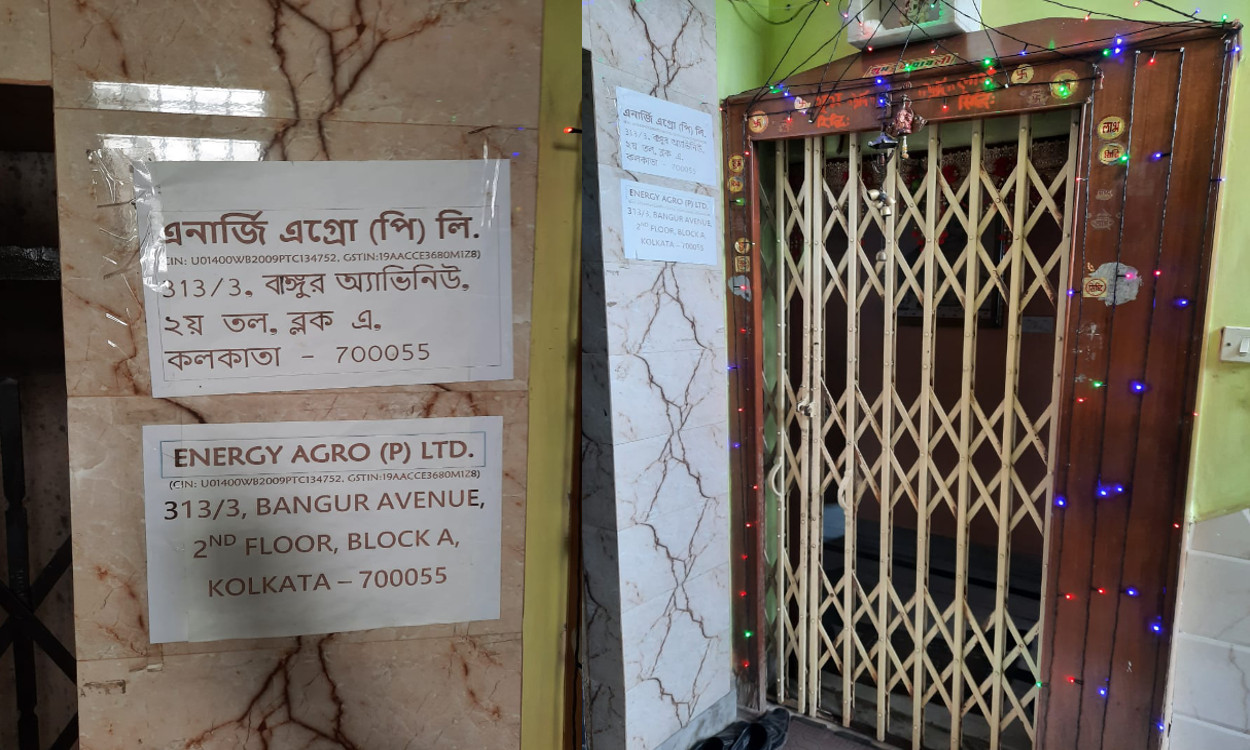 এনার্জি এগ্রো (পি) লি.
(CIN: U01400WB2009PTC134752, GSTIN:19AACCE3680M1Z8)
313/3, বাঙ্গুর অ্যাভিনিউ,
২য় তল, ব্লক এ,
কলকাতা - 700055
ENERGY AGRO (P) LTD.
(CIN: U01400WB2009PTC134752, GSTIN:19AACCE3680M1Z8)
313/3, BANGUR AVENUE,
2ND FLOOR, BLOCK A,
KOLKATA – 700055
এনার্জি এগ্রো (পি) লি.
313/3, বাঙ্গুর অ্যাভিনিউ,
২য় তল, ব্লক এ,
কলকাতা - 700055
ENERGY AGRO (P) LTD.
313/3, BANGUR AVENUE,
2ND FLOOR, BLOCK A,
KOLKATA – 700055
लाभ